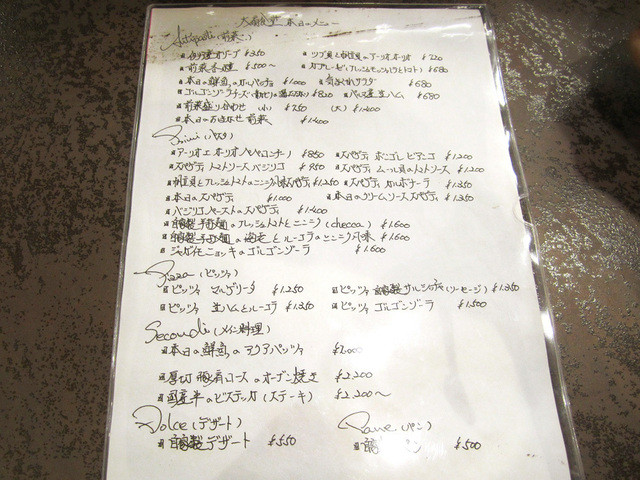 大衆食堂 本日のメニュー
Antipasti (前菜)
オリーブ ¥350 ツブ貝とのアーリオオーリオ ¥720
前菜各種 ¥500〜 カプレーゼ(フレッシュモッツァラとトマト) ¥680
本日の鮮魚のカルパッチョ ¥1.000 サラダ ¥680
ゴルゴンゾーラチーズ ¥820 パルマ産生ハム ¥680
前菜盛り合わせ (小) ¥750 (大) ¥1.200
本日のおまかせ前菜 ¥1.400
Primi (パスタ)
アーリオ エ オーリオ ペペロンチーノ ¥850 スパゲティ ボンゴレ ビアンコ ¥1.200
スパゲティ トマトソース バジリコ ¥950 スパゲティ ムール貝のトマトソース ¥1.200
とフレッシュトマトのニンニク スパゲティ ¥1.250 スパゲティ カルボナーラ ¥1.350
本日のスパゲティ ¥1.000 本日のクリームソース スパゲティ ¥1.350
バジリコペーストのスパゲティ ¥1.400
自家製手打麺のフレッシュトマトとニンニク (checca) ¥1.600
自家製手打麺の海老とルーコラのニンニク風味 ¥1.600
ジャガイモニョッキのゴルゴンゾーラ ¥1.600
Pizza (ピッツァ)
ピッツァ マルゲリータ ¥1.250 ピッツァ 自家製サルシッチャ(ソーセージ) ¥1.350
ピッツァ 生ハムとルーコラ ¥1.350 ピッツァ ゴルゴンゾーラ ¥1.500
Secondi (メイン料理)
本日の鮮魚のアクアパッツァ
厚切豚肩ロースのオーブン焼き ¥2,200
国産牛のビステッカ (ステーキ) ¥2.200〜
Dolce (デザート) Pane (パン)
自家製デザート ¥550 自家製パン ¥500